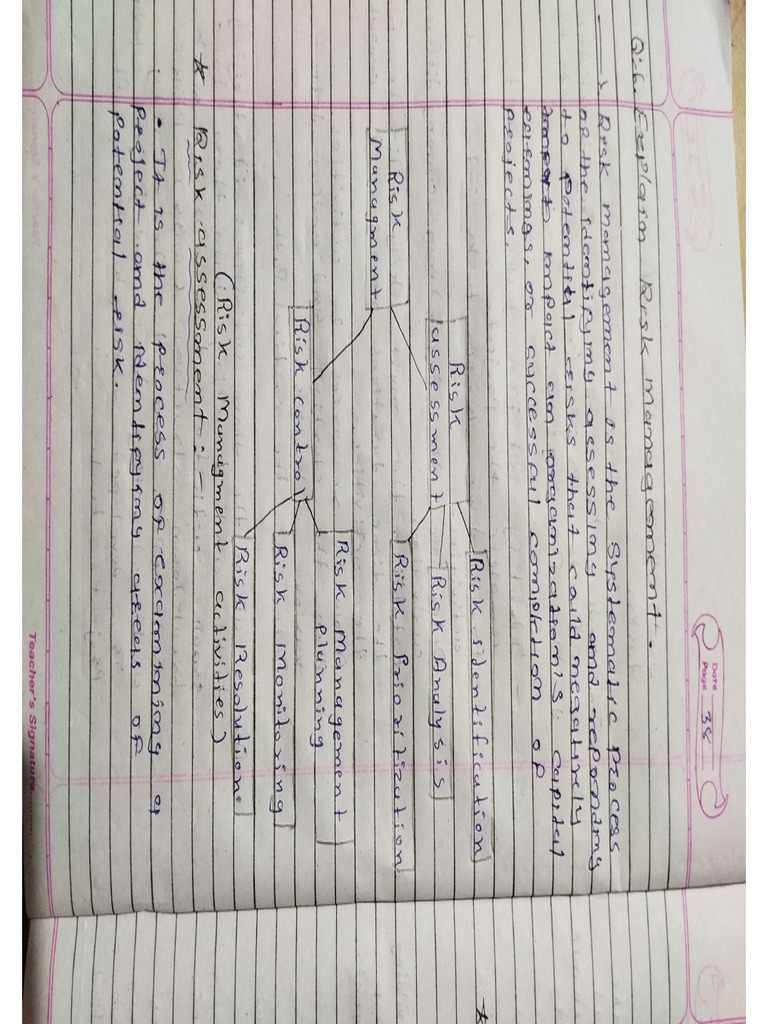 Date
Page 38
Q:6. Explain Risk management.
→ Risk management is the systematic process
of the identifying assessing and reponding
to potential risks that could negatively
impact an organization's capital
earnings, or successful completion of
projects.
Risk identification
Risk assessment
Risk Analysis
Risk Prioritization
Risk Managment
Risk Management planning
Risk control
Risk Monitoring
Risk Resolution
(Risk Managment activities)
* Risk assessment :-
• It is the process of examining a
project and identifying areas of
potential risk.
Teacher's Signature